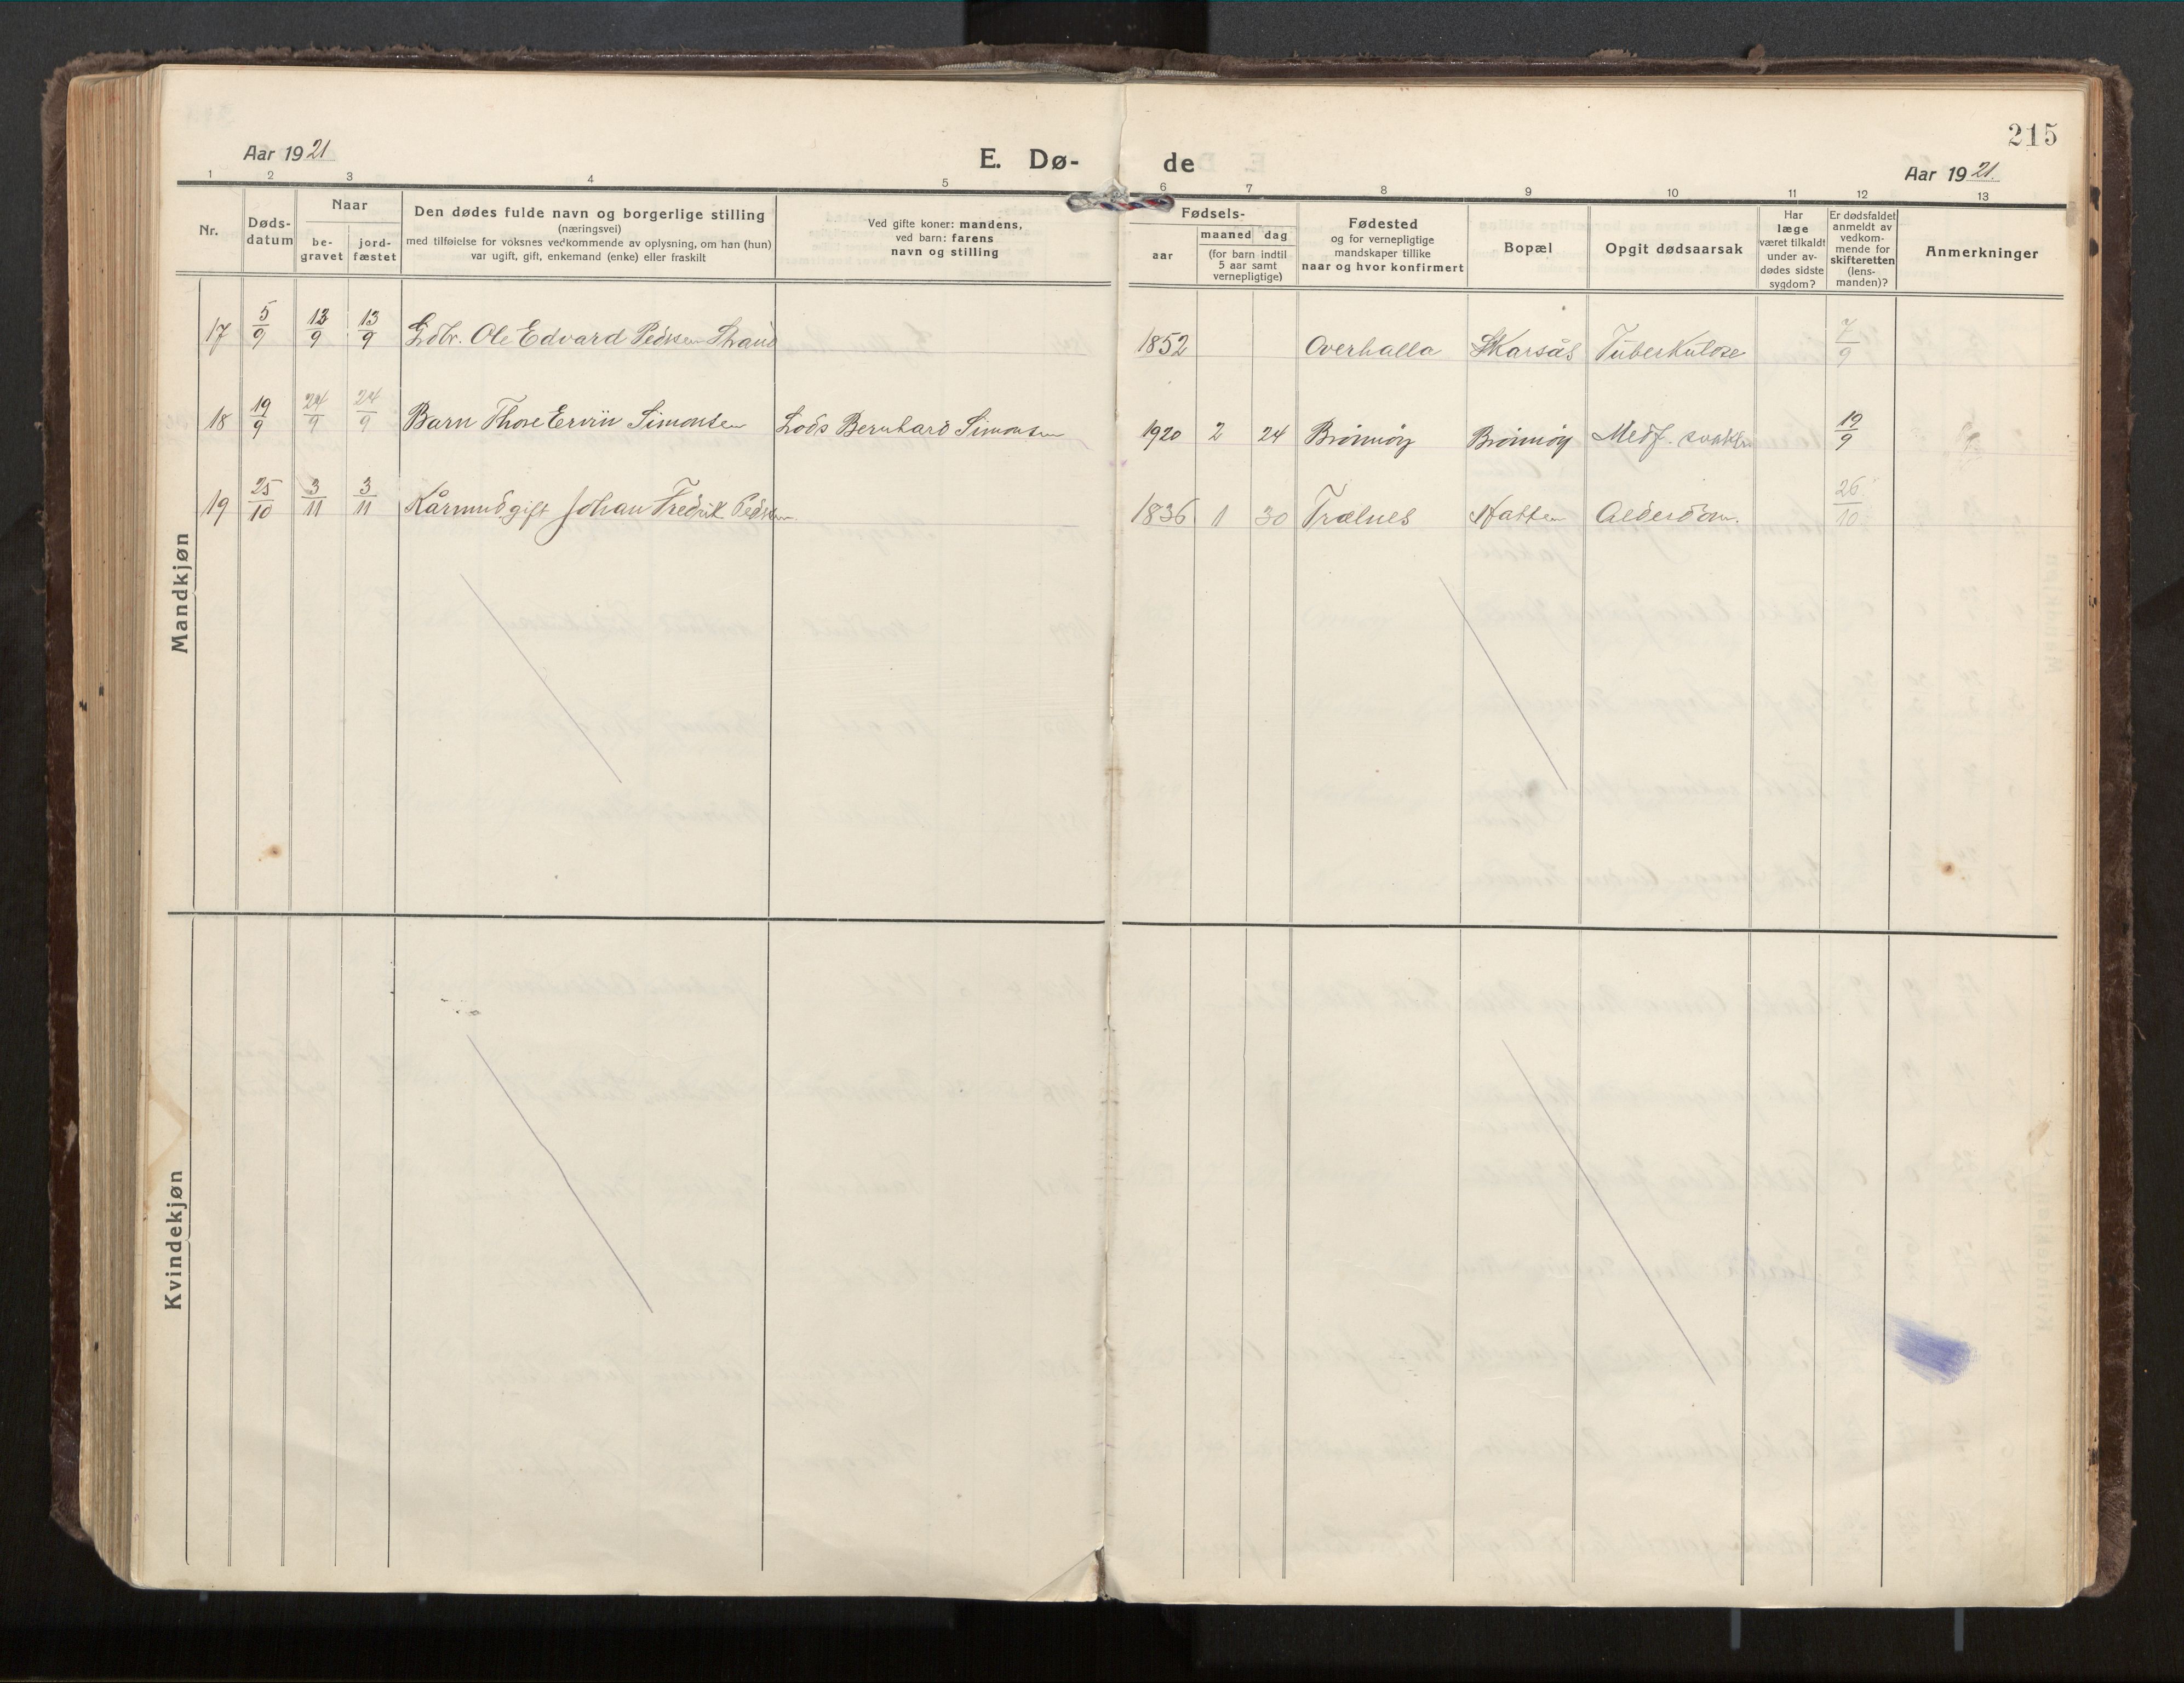 215
Aar 1921
E. Dø-
de
Aar 1921.
1 2 3 4 5 6 7 8 9 10 11 12 13
Nr.
Døds-
datum
Naar
be-
gravet
jord-
fæstet
Den dødes fulde navn og borgerlige stilling
(næringsvei)
med tilføielse for voksnes vedkommende av oplysning, om han (hun)
var ugift, gift, enkemand (enke) eller fraskilt
Ved gifte koner: mandens,
ved barn: farens
navn og stilling
Fødsels-
aar
maaned dag
(for barn indtil
5 aar samt
vernepligtige)
Fødested
og for vernepligtige
mandskaper tillike
naar og hvor konfirmert
Bopæl
Opgit dødsaarsak
Har
læge
været tilkaldt
under av-
dødes sidste
sygdom?
Er dødsfaldet
anmeldt av
vedkom-
mende for
skifteretten
(lens-
manden)?
Anmerkninger
Mandkjøn
17 5/9 13/9 13/9 Gdbr. Ole Edvard Pedersen Strand 1852 Overhalla Skarsås Tuberkulose 7/9
18 19/9 24/9 24/9 Barn Thore Ervin Simonsen Lods Bernhard Simonsen 1920 2 24 Brönnöy Brönnöy Medf. svakh. 19/9
19 25/10 3/11 3/11 Kårmand gift Johan Fredrik Pedersen 1836 1 30 Trælnes Hatten Alderdom. 26/10
Kvindekjøn